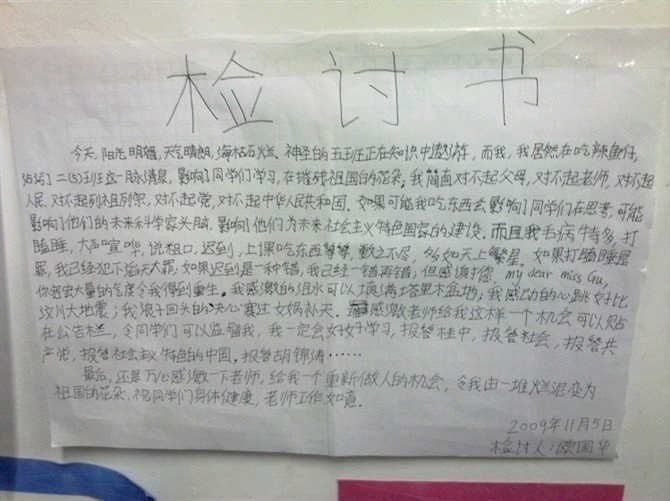 检讨书
今天,阳光明媚,天气晴朗,海枯石烂,神圣的五班正在知识中遨游,而我,我居然在吃辣鱼仔,
玷污了二(5)班这一脉清泉,影响了同学们学习,在摧残祖国的花朵,我简直对不起父母,对不起老师,对不起
人民,对不起列祖列宗,对不起党,对不起中华人民共和国,如果可能我吃东西会影响了同学们在思考,可能
影响了他们的未来科学家头脑,影响了他们为未来社会主义特色国家的建设。而且我毛病特多,打
瞌睡,大声喧哗,说粗口,迟到,上课吃东西等等,数之不尽,多如天上繁星。如果打瞌睡是
罪,我已经犯下滔天大罪;如果迟到是一种错,我已经一错再错;但感谢您 my dear miss Gu,
你宽宏大量的气度令我得到重生。我感激的泪水可以填满塔里木盆地;我感动的心跳好比
汶川大地震;我浪子回头的决心赛过女娲补天。感激老师给我这样一个机会可以贴
在公告栏,令同学们可以监督我,我一定会好好学习,报答桂中,报答社会,报答共
产党,报答社会主义特色的中国,报答胡锦涛……
最后,还是万心感激一下老师,给我一个重新做人的机会,令我由一堆烂泥变为
祖国的花朵,祝同学们身体健康,老师工作如意.
2009年11月5日
检讨人:欧国华